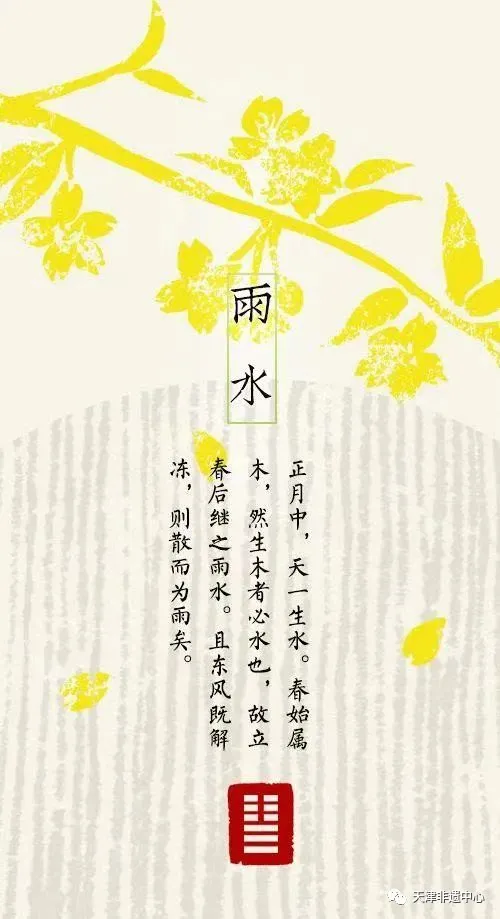 雨水
正月中，天一生水。春始属
木，然生木者必水也，故立
春后继之雨水。且东风既解
冻，则散而为雨矣。
天津非遗中心